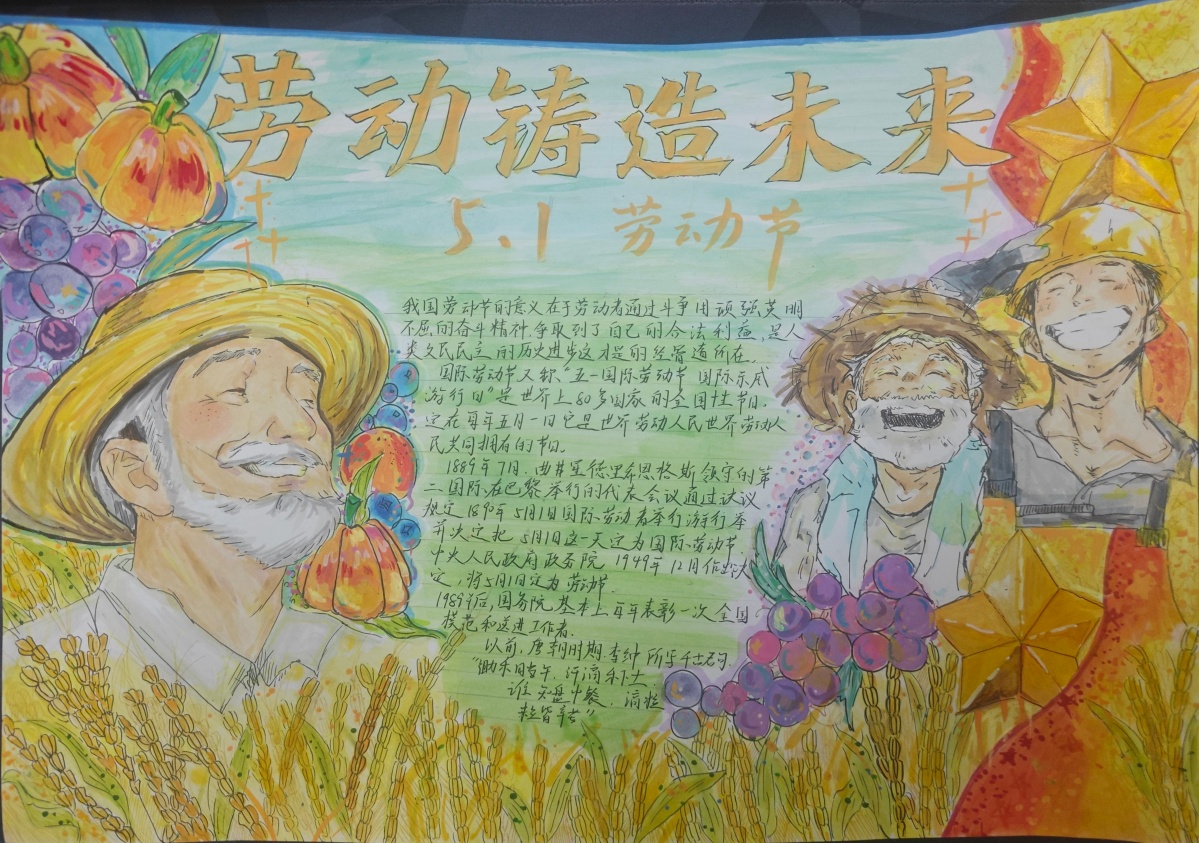 劳动铸造未来
5.1 劳动节
我国劳动节的意义在于劳动者通过斗争用顽强英明
不屈的奋斗精神,争取到了自己的合法利益,是人
类文民民主的历史进步这才是的经管道所在。
国际劳动节又称“五一国际劳动节 国际示威
游行日”是世界上80多国家的全国性节日。
定在每年五月一日它是世界劳动人民世界劳动人
民共同拥有的节日。
1889年7月,由 恩格斯领导的第
二国际,在巴黎举行的代表会议通过决议
规定1890年5月1日国际劳动者举行游行 举
并决定把5月1日这一天定为国际劳动节
中央人民政府政务院 1949年12月作出决
定,将5月1日定为劳动节.
1989年后,国务院基本上每年表彰一次全国
模范和送进工作者.
以前,唐朝时期李绅所写
“锄禾日当午,汗滴禾下土
谁 盘中餐. 滴粒
粒皆辛苦”